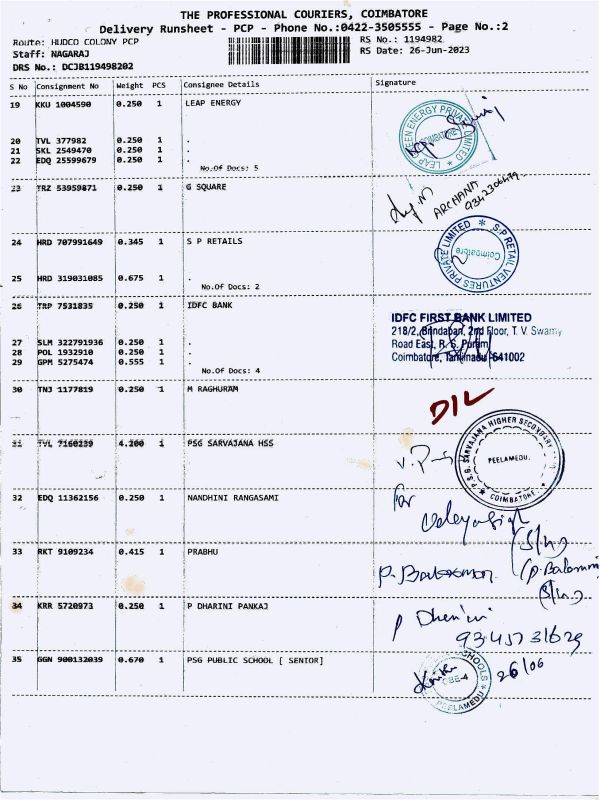 THE PROFESSIONAL COURIERS, COIMBATORE
Delivery Runsheet - PCP - Phone No.:0422-3505555 - Page No.:2
Route: HUDCO COLONY PCP
RS No.: 1194982
Staff: NAGARAJ
RS Date: 26-Jun-2023
DRS No.: DCJB119498202
S No Consignment No Weight PCS Consignee Details Signature
19 KKU 1004590 0.250 1 LEAP ENERGY
20 TVL 377982 0.250 1 .
21 SKL 2549470 0.250 1 .
22 EDQ 25599679 0.250 1 .
No.Of Docs: 5
LEAP GREEN ENERGY PRIVATE
COIMBATORE
23 TRZ 53959871 0.250 1 G SQUARE
ARCHANA
24 HRD 707991649 0.345 1 S P RETAILS
25 HRD 319031085 0.675 1 .
No.Of Docs: 2
S.P RETAIL VENTURES PRIVATE LIMITED
Coimbatore
26 TRP 7531835 0.250 1 IDFC BANK
27 SLM 322791936 0.250 1 .
28 POL 1932910 0.250 1 .
29 GPM 5275474 0.555 1 .
No.Of Docs: 4
IDFC FIRST BANK LIMITED
218/2, Brindaban, 2nd Floor, T. V. Swamy
Road East, R. S. Puram,
Coimbatore, Tamilnadu 641002
30 TNJ 1177819 0.250 1 M RAGHURAM
D/L
31 TVL 7160239 4.200 1 PSG SARVAJANA HSS
P.S.G. SARVAJANA HIGHER SECONDARY
PEELAMEDU.
COIMBATORE
32 EDQ 11362156 0.250 1 NANDHINI RANGASAMI
For
33 RKT 9109234 0.415 1 PRABHU
34 KRR 5720973 0.250 1 P DHARINI PANKAJ
P Dharini
9345731629
35 GGN 900132039 0.670 1 PSG PUBLIC SCHOOL [ SENIOR]
SCHOOLS
CBE-4
PEELAMEDU
26/06